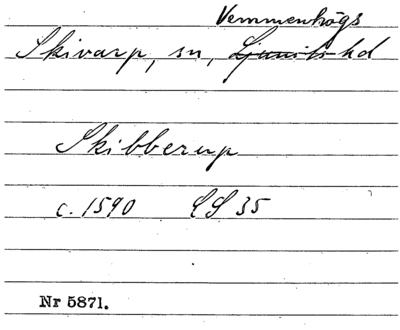 Vemmenhögs
Skivarp, sn, Ljunits hd
Skibberup
c. 1590 LS 35
Nr 5871.